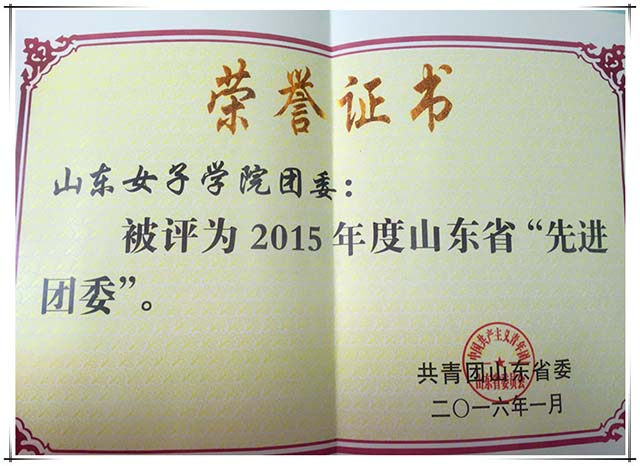 荣誉证书
山东女子学院团委：
被评为2015年度山东省“先进
团委”。
中国共产主义青年团
山东省委员会
共青团山东省委
二〇一六年一月